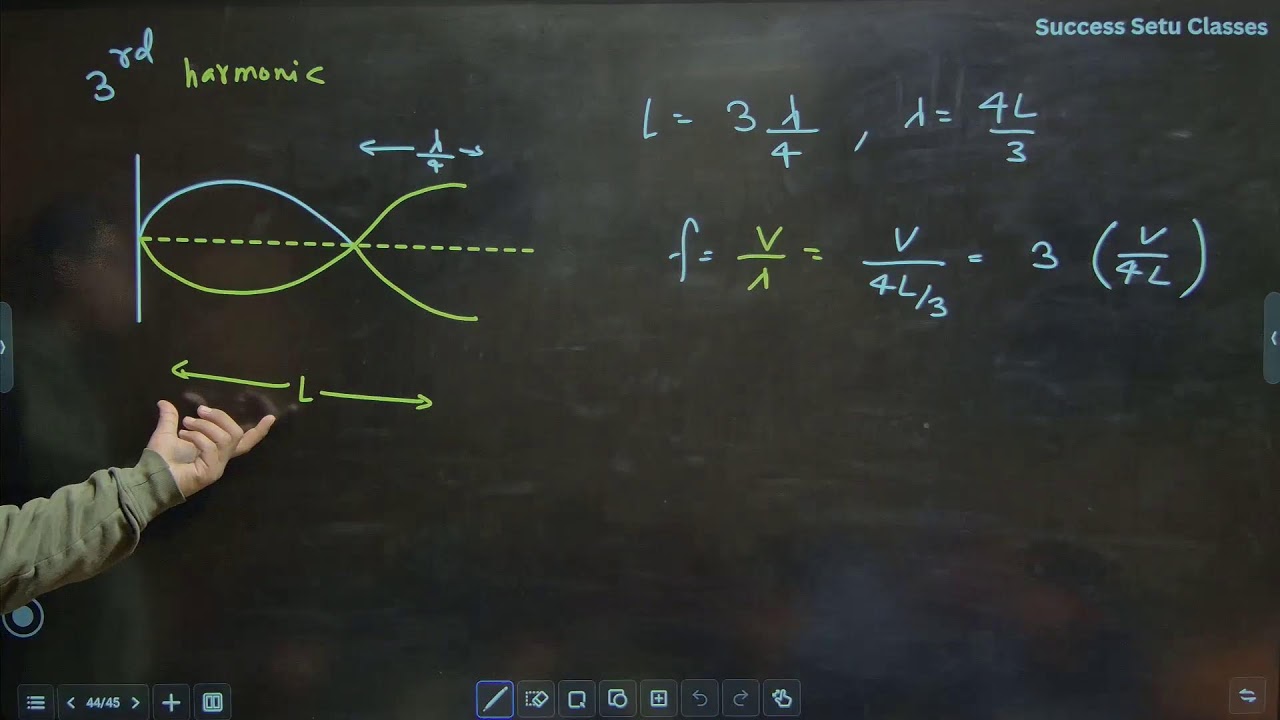 Success Setu Classes
3rd harmonic
L = 3 λ/4 , λ = 4L/3
λ/4
f = V/λ = V/(4L/3) = 3 (V/4L)
L
44/45